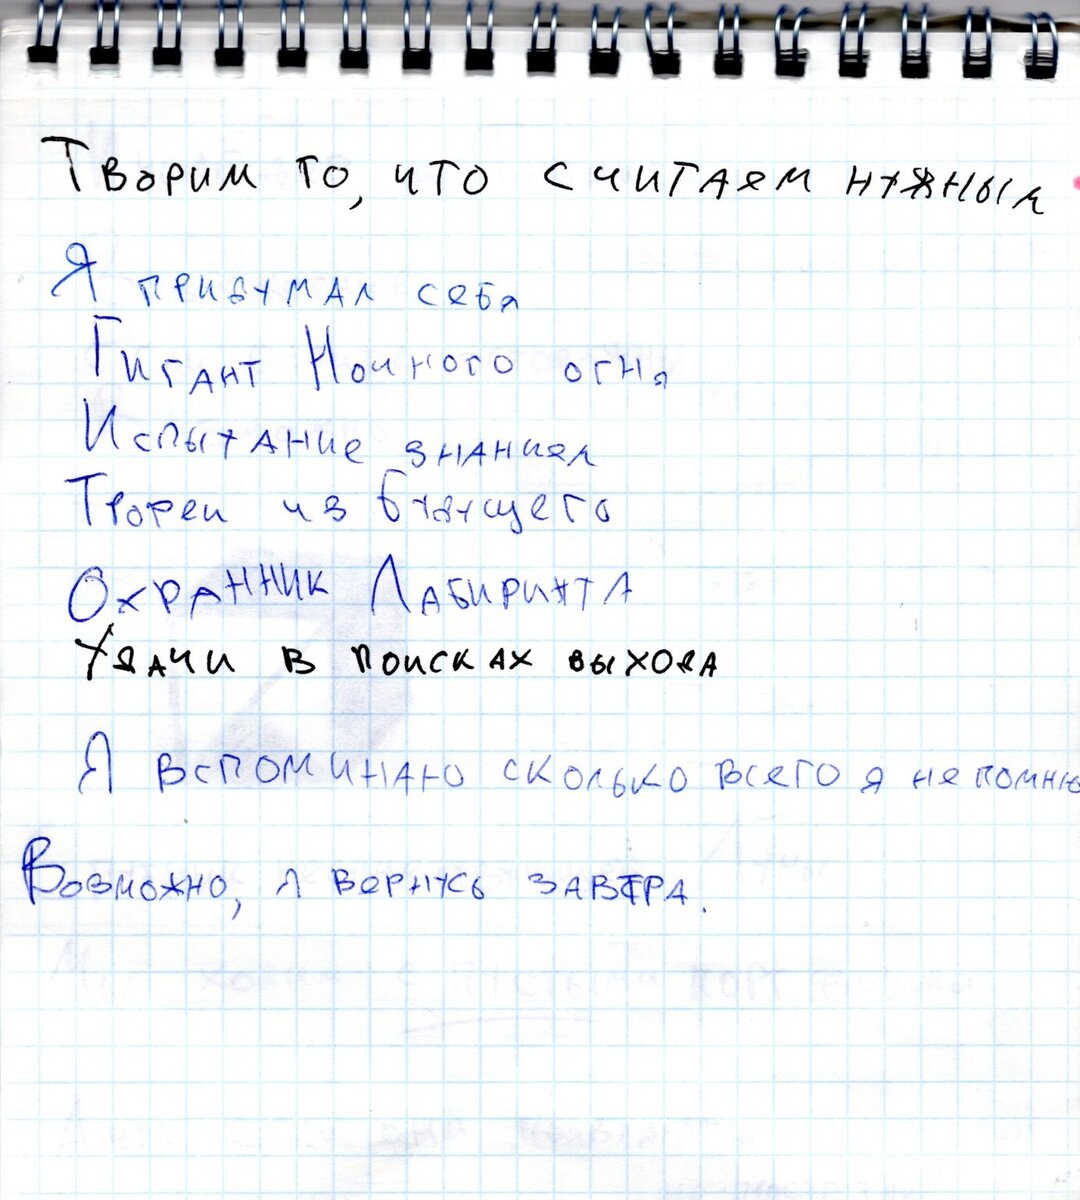 Творим то, что считаем нужным
Я придумал себя
Гигант Ночного огня
Испытание знанием
Трофеи из будущего
Охранник Лабиринта
Удачи в поисках выхода
Я вспоминаю сколько всего я не помню
Возможно, я вернусь завтра.